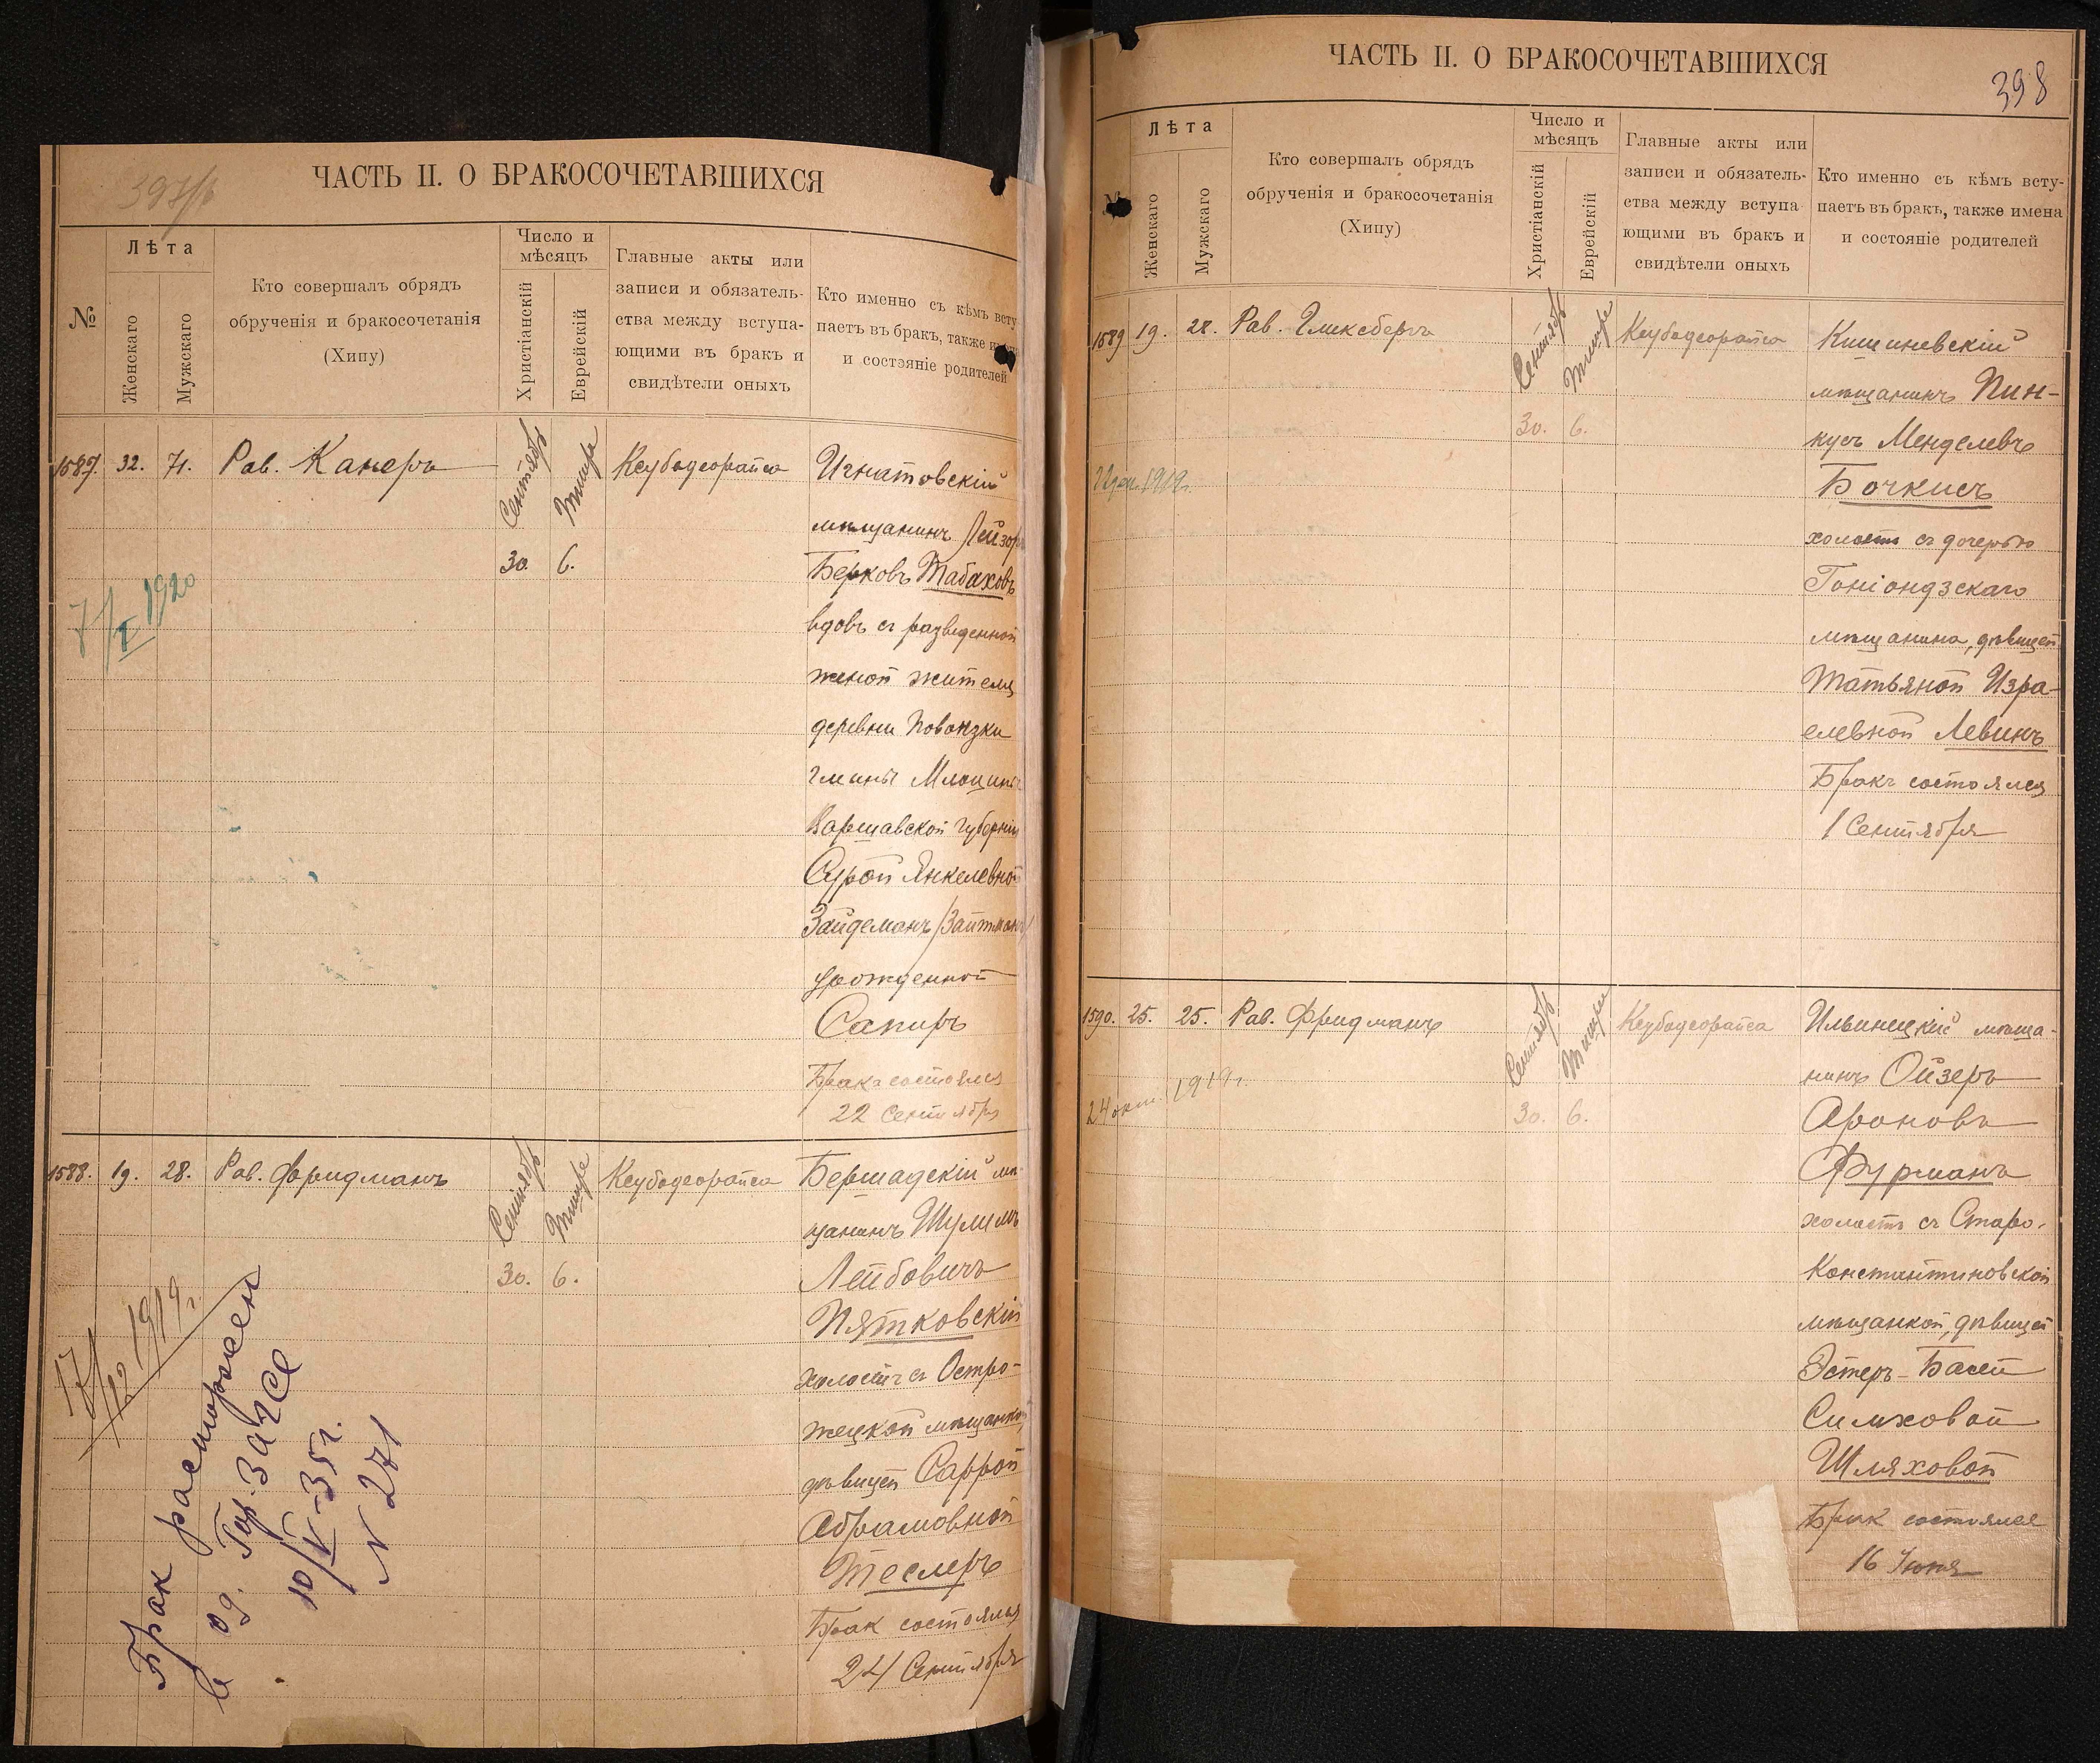 397/б
ЧАСТЬ II. О БРАКОСОЧЕТАВШИХСЯ
№
Лѣта
Женскаго
Мужскаго
Кто совершалъ обрядъ
обрученія и бракосочетанія
(Хипу)
Число и
мѣсяцъ
Христіанскій
Еврейскій
Главные акты или
записи и обязатель-
ства между вступа-
ющими въ бракъ и
свидѣтели оныхъ
Кто именно съ кѣмъ всту
паетъ въ бракъ, также
и состояніе родителей
1587. 32. 71. Рав. Канеръ
Сентябрь
Тишри
30. 6.
Кеубодеорайса
7/I 1920
Игнатовскій
мѣщанинъ Лейзоръ
Берковъ Табаховъ
вдовъ съ разведенной
женой жителя
деревни Повонзки
гмины Млоцины
Варшавской губерніи
Сурой Янкелевной
Зайдеманъ/Зайтманъ/
урожденной
Сапиръ
Бракъ состоялся
22 Сентября
1588. 19. 28. Рав. Фридманъ
Сентябрь
Тишре
30. 6.
Кеубодеорайса
17/12 1919г.
Брак расторжен
в од. Гор. ЗАГСе
10/V-35г.
N 271
Бершадскій мѣ
щанинъ Шулимъ
Лейбовичъ
Пятковскій
холостъ съ Остро-
жецкой мѣщанкой,
дѣвицей Саррой
Абрамовной
Теслеръ
Брак состоялся
24 Сентября
ЧАСТЬ II. О БРАКОСОЧЕТАВШИХСЯ
398
Лѣта
Женскаго
Мужскаго
Кто совершалъ обрядъ
обрученія и бракосочетанія
(Хипу)
Число и
мѣсяцъ
Христіанскій
Еврейскій
Главные акты или
записи и обязатель-
ства между вступа-
ющими въ бракъ и
свидѣтели оныхъ
Кто именно съ кѣмъ всту-
паетъ въ бракъ, также имена
и состояніе родителей
1589 19. 28. Рав. Гликсбергъ
Сентябрь
Тишре
30. 6.
Кеубодеорайса
1919г.
Кишиневскій
мѣщанинъ Пин-
кусъ Менделевъ
Бочкисъ
холостъ съ дочерью
Гоніондзскаго
мѣщанина, дѣвицей
Татьяной Изра-
елевной Левинъ
Бракъ состоялся
1 Сентября
1590. 25. 25. Рав. Фридманъ
Сентябрь
Тишри
30. 6.
Кеубодеорайса
24 окт. 1919г.
Ильинецкій мѣща-
нинъ Ойзеръ
Ароновъ
Фурманъ
холостъ съ Старо-
Константиновской
мѣщанкой, дѣвицей
Эстеръ-Басей
Симховой
Шляховой
Брак состоялся
16 Іюня